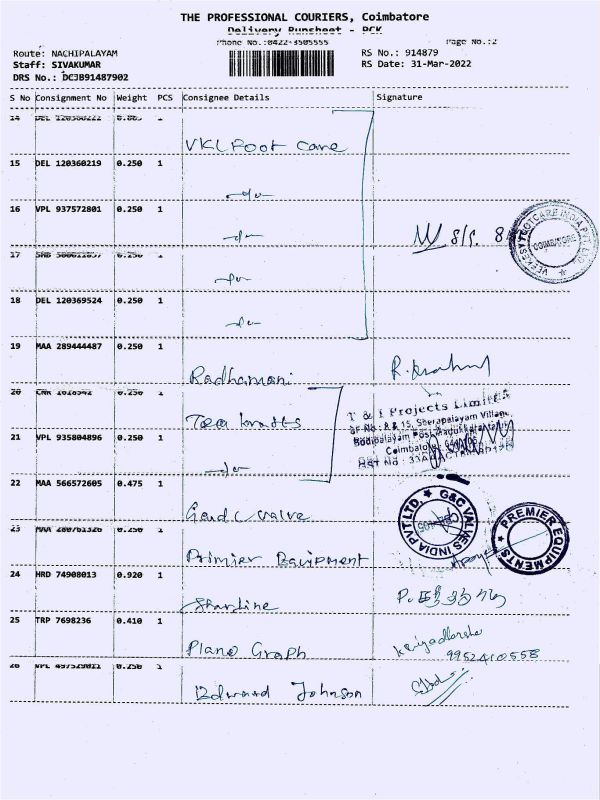 THE PROFESSIONAL COURIERS, Coimbatore
Delivery Runsheet - PCK
Phone No.:0422-3505555 Page No.:2
Route: NACHIPALAYAM RS No.: 914879
Staff: SIVAKUMAR RS Date: 31-Mar-2022
DRS No.: DC3B91487902
S No Consignment No Weight PCS Consignee Details Signature
14 DEL 1
VKC Foot Care
15 DEL 120360219 0.250 1
-do-
16 VPL 937572801 0.250 1
-do-
VEEKESY FOOTCARE INDIA PVT LTD
COIMBATORE
17 0.250 1
-do-
18 DEL 120369524 0.250 1
-do-
19 MAA 289444487 0.250 1
Radhamani
20 0.250 1
T & I Projects Limited
SF No : A & 15, Sherapalayam Village,
Coimbatore 641105
21 VPL 935804896 0.250 1
-do-
22 MAA 566572605 0.475 1
G and C valve
G&C VALVES INDIA PVT. LTD.
23 MAA 0.250 1
Primier Equipment
PREMIER EQUIPMENTS
24 HRD 74908013 0.920 1
Starline
25 TRP 7698236 0.410 1
Plano Graph
9952410558
26 VPL 0.250 1
Edward Johnson